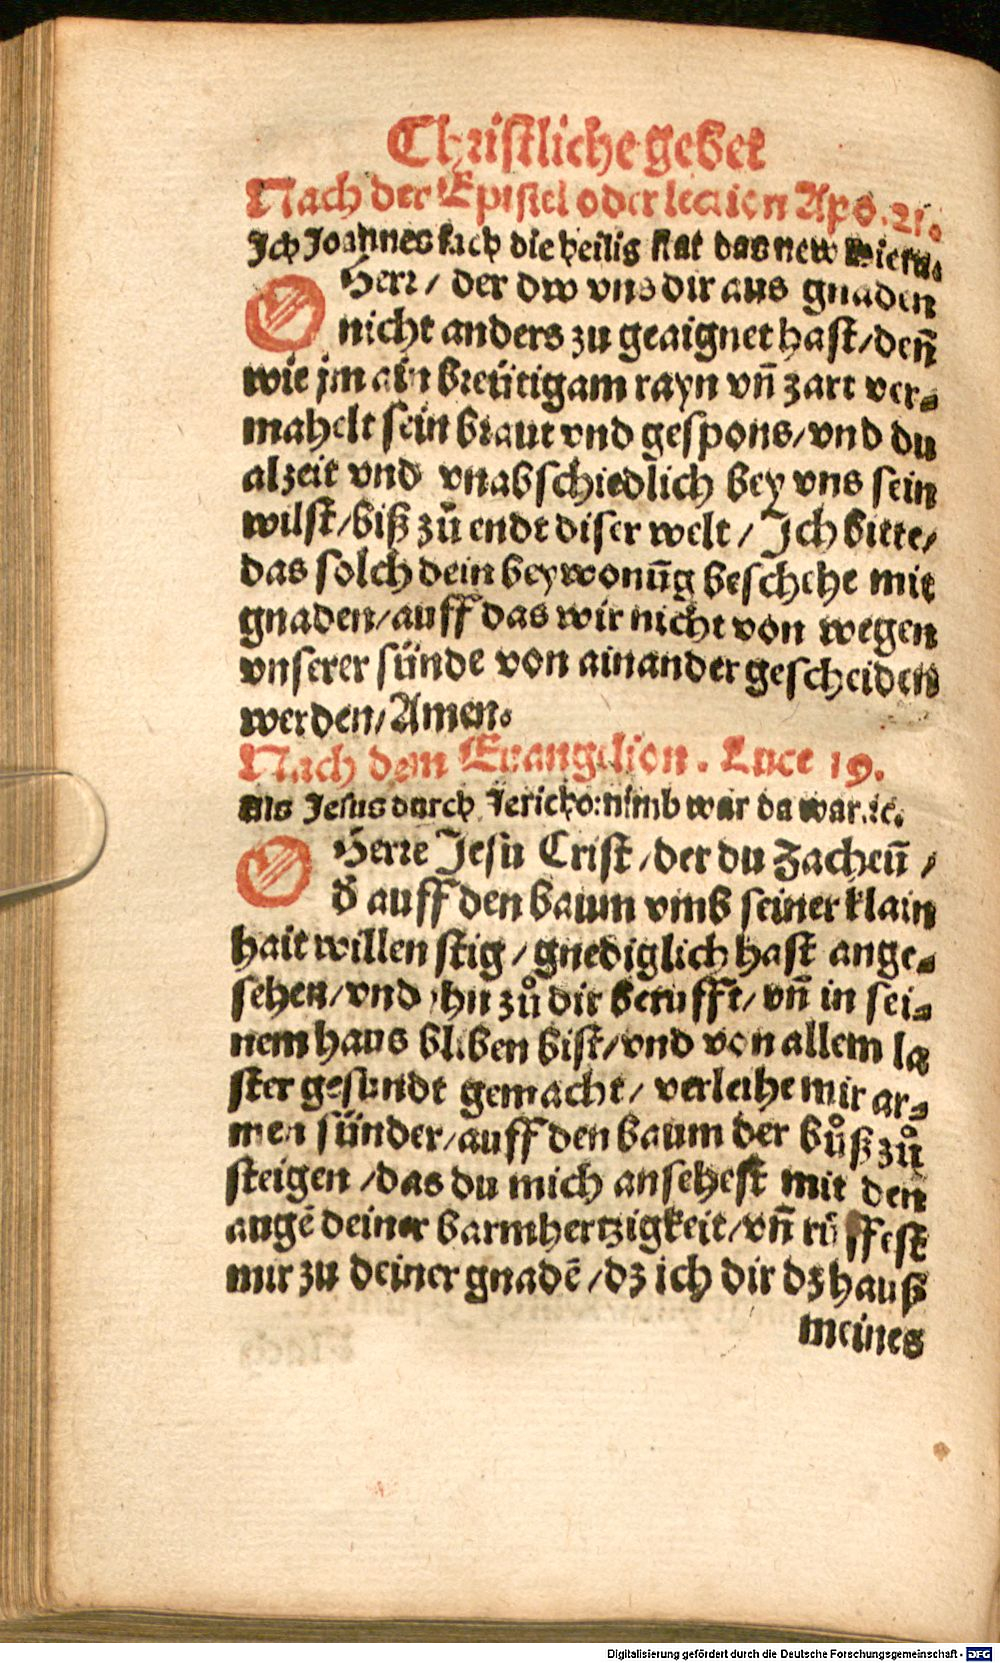 Christliche gebet
Nach der Epistel oder lection Apo. 21.
Ich Joannes sach die heilig stat das new Hieru.
O Herr / der dw vns dir aus gnaden
nicht anders zu geaignet hast / deñ
wie jm ain breütigam rayn vñ zart ver⸗
mahelt sein braut vnd gespons / vnd du
alzeit vnd vnabschiedlich bey vns sein
wilst / biß zů endt diser welt / Ich bitte /
das solch dein beywonūg beschehe mit
gnaden / auff das wir nicht von wegen
vnserer sünde von ainander gescheiden
werden / Amen.
Nach dem Euangelion . Luce 19.
Als Jesus durch Jericho: nimb war da war. ꝛc.
O Herre Jesu Crist / der du Zacheū /
d̄ auff den baum vmb seiner klain
hait willen stig / gnediglich hast ange⸗
sehen / vnd jhn zů dir berufft / vñ in sei⸗
nem haus bliben bist / vnd von allem la
ster gesundt gemacht / verleihe mir ar⸗
men sünder / auff den baum der bůß zů
steigen / das du mich ansehest mit den
augē deiner barmhertzigkeit / vñ rüffest
mir zu deiner gnadē / dz ich dir dz hauß
meines
Digitalisierung gefördert durch die Deutsche Forschungsgemeinschaft - DFG